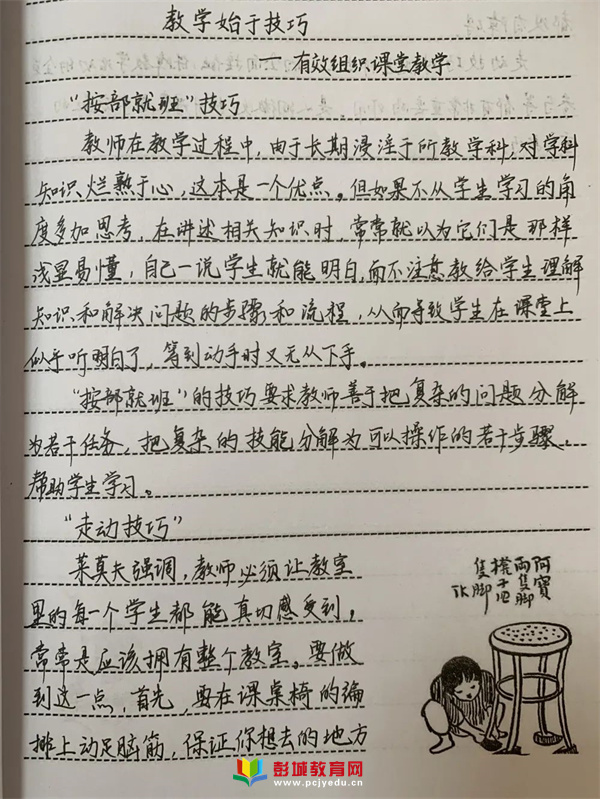 教学始于技巧
—有效组织课堂教学
“按部就班”技巧
教师在教学过程中,由于长期浸淫于所教学科,对学科
知识烂熟于心,这本是一个优点。但如果不从学生学习的角
度多加思考,在讲述相关知识时,常常就以为它们是那样
浅显易懂,自己一说学生就能明白,而不注意教给学生理解
知识和解决问题的步骤和流程,从而导致学生在课堂上
似乎听明白了,等到动手时又无从下手。
“按部就班”的技巧要求教师善于把复杂的问题分解
为若干任务,把复杂的技能分解为可以操作的若干步骤,
帮助学生学习。
“走动技巧”
莱莫夫强调,教师必须让教室
里的每一个学生都能真切感受到,
常常是应该拥有整个教室。要做
到这一点,首先,要在课桌椅的编
排上动足脑筋,保证你想去的地方
阿寶
兩隻腳
櫈子四
隻腳
彭城教育网
www.pcjyedu.cn